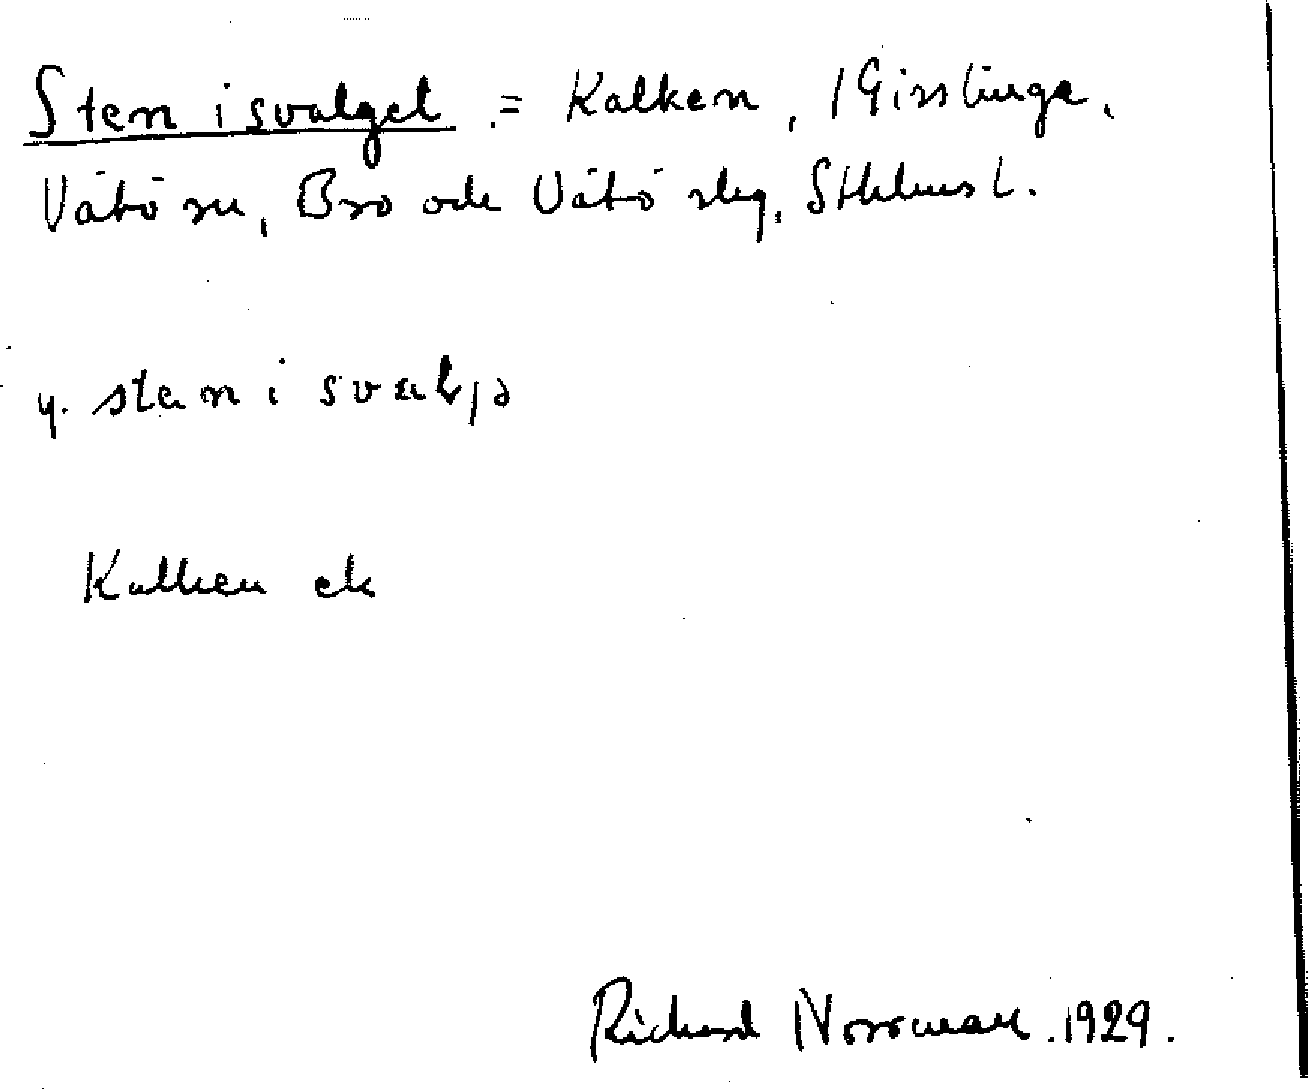 Sten i svalget = Kalken, 1 Gisslinge,
Vätö sn, Bro och Vätö slg, Sthlms l.
y. sten i
Kalken etc
Richard Norrman. 1929.